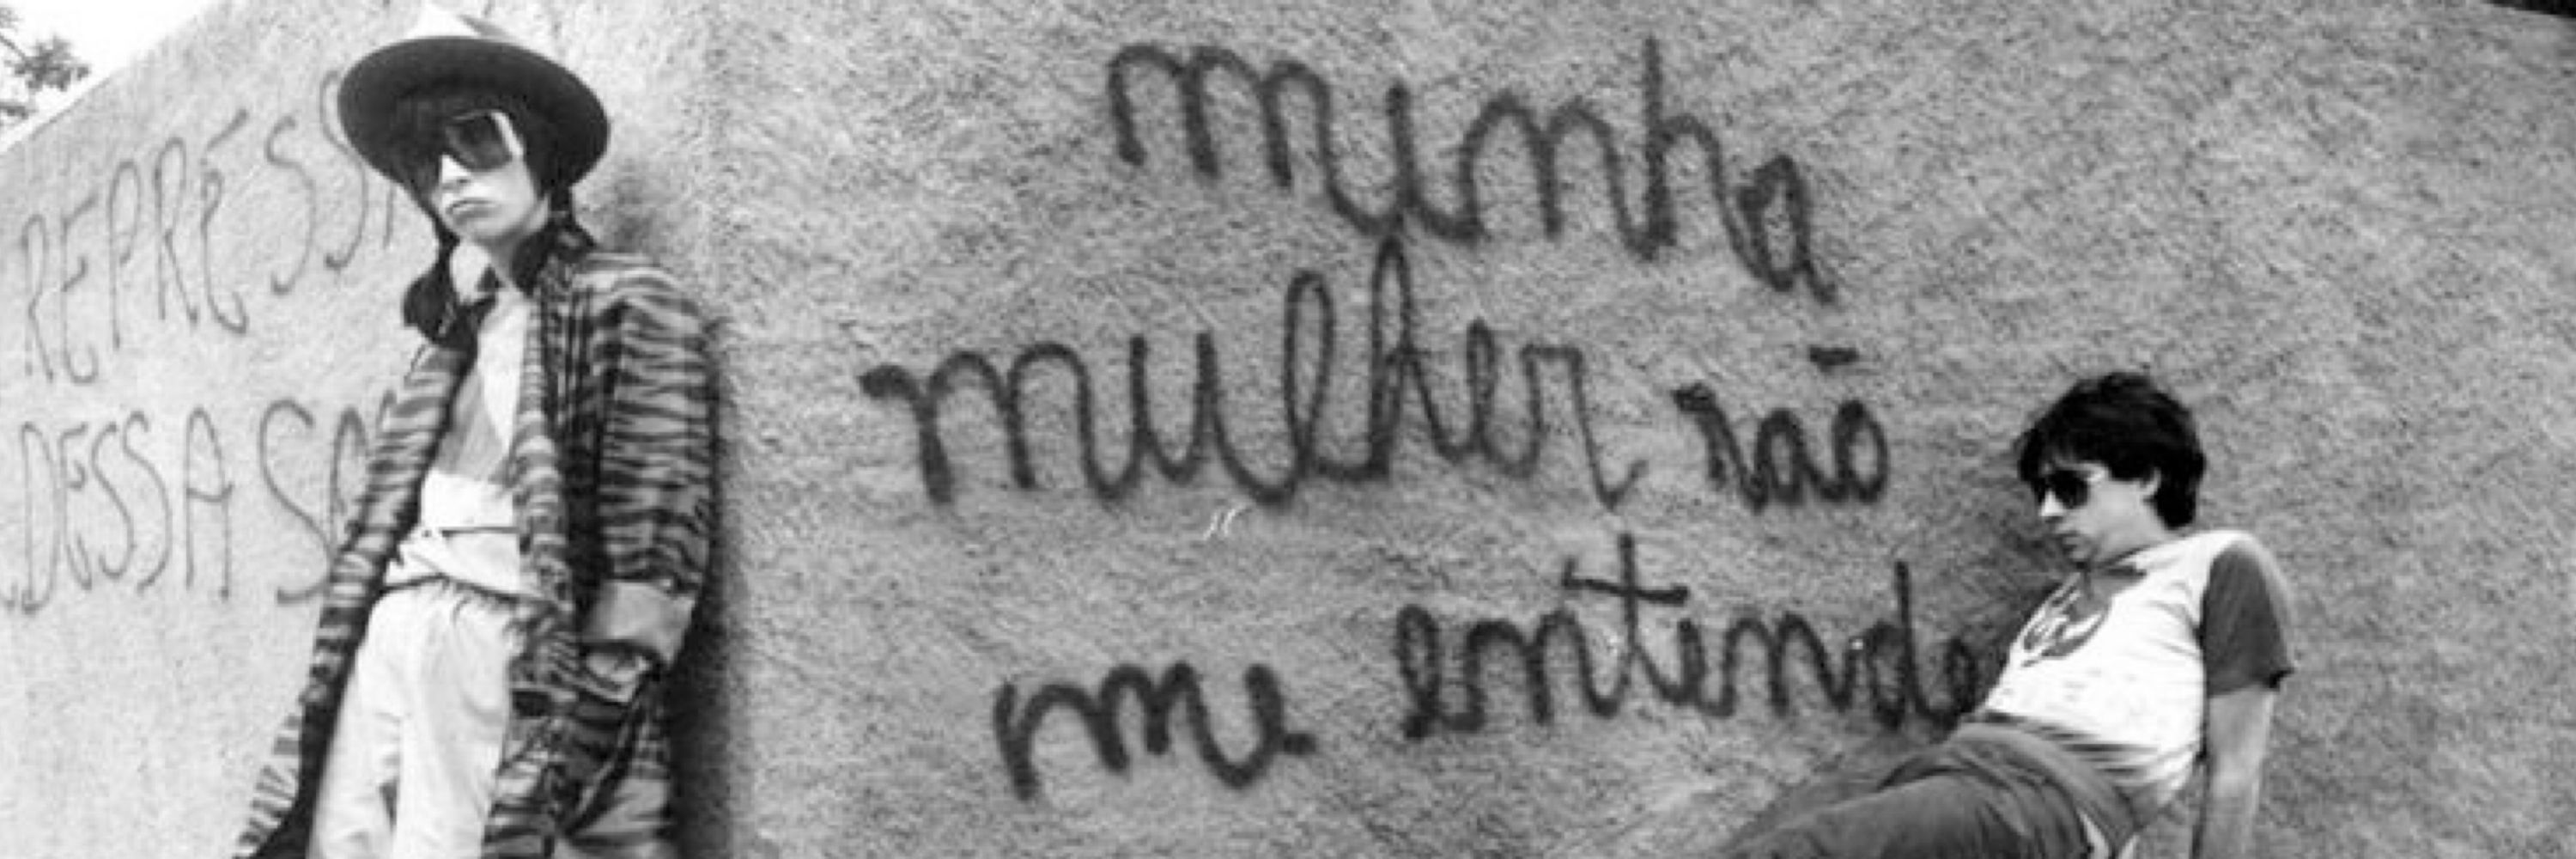 REPRESSÃ
DESSA SO
minha
mulher não
me entende